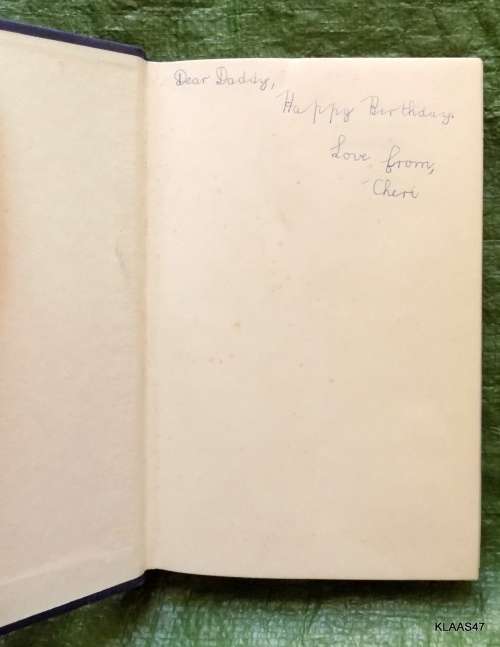 Dear Daddy,
Happy Birthday.
Love from,
Cheri
KLAAS47